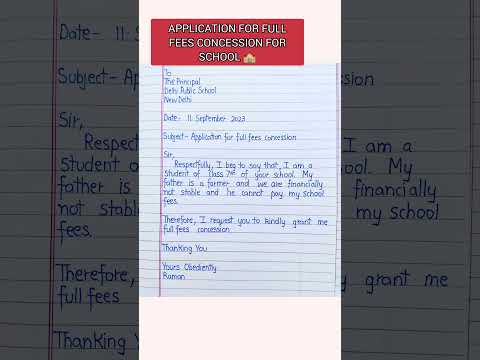 APPLICATION FOR FULL
FEES CONCESSION FOR
SCHOOL
To
The Principal
Delhi Public School
New Delhi
Date- 11 September 2023
Subject- Application for full fees concession
Sir,
Respectfully, I beg to say that, I am a
Student of class 7th of your school. My
father is a farmer and we are financially
not stable and he cannot pay my school
fees.
Therefore, I request you to kindly grant me
full fees concession
Thanking You
Yours Obediently
Raman
Date- 11
Subject-
Sir,
I am a
Student of
My
father is
financially
not stable
my school
fees.
Therefore,
grant me
full fees
Thanking